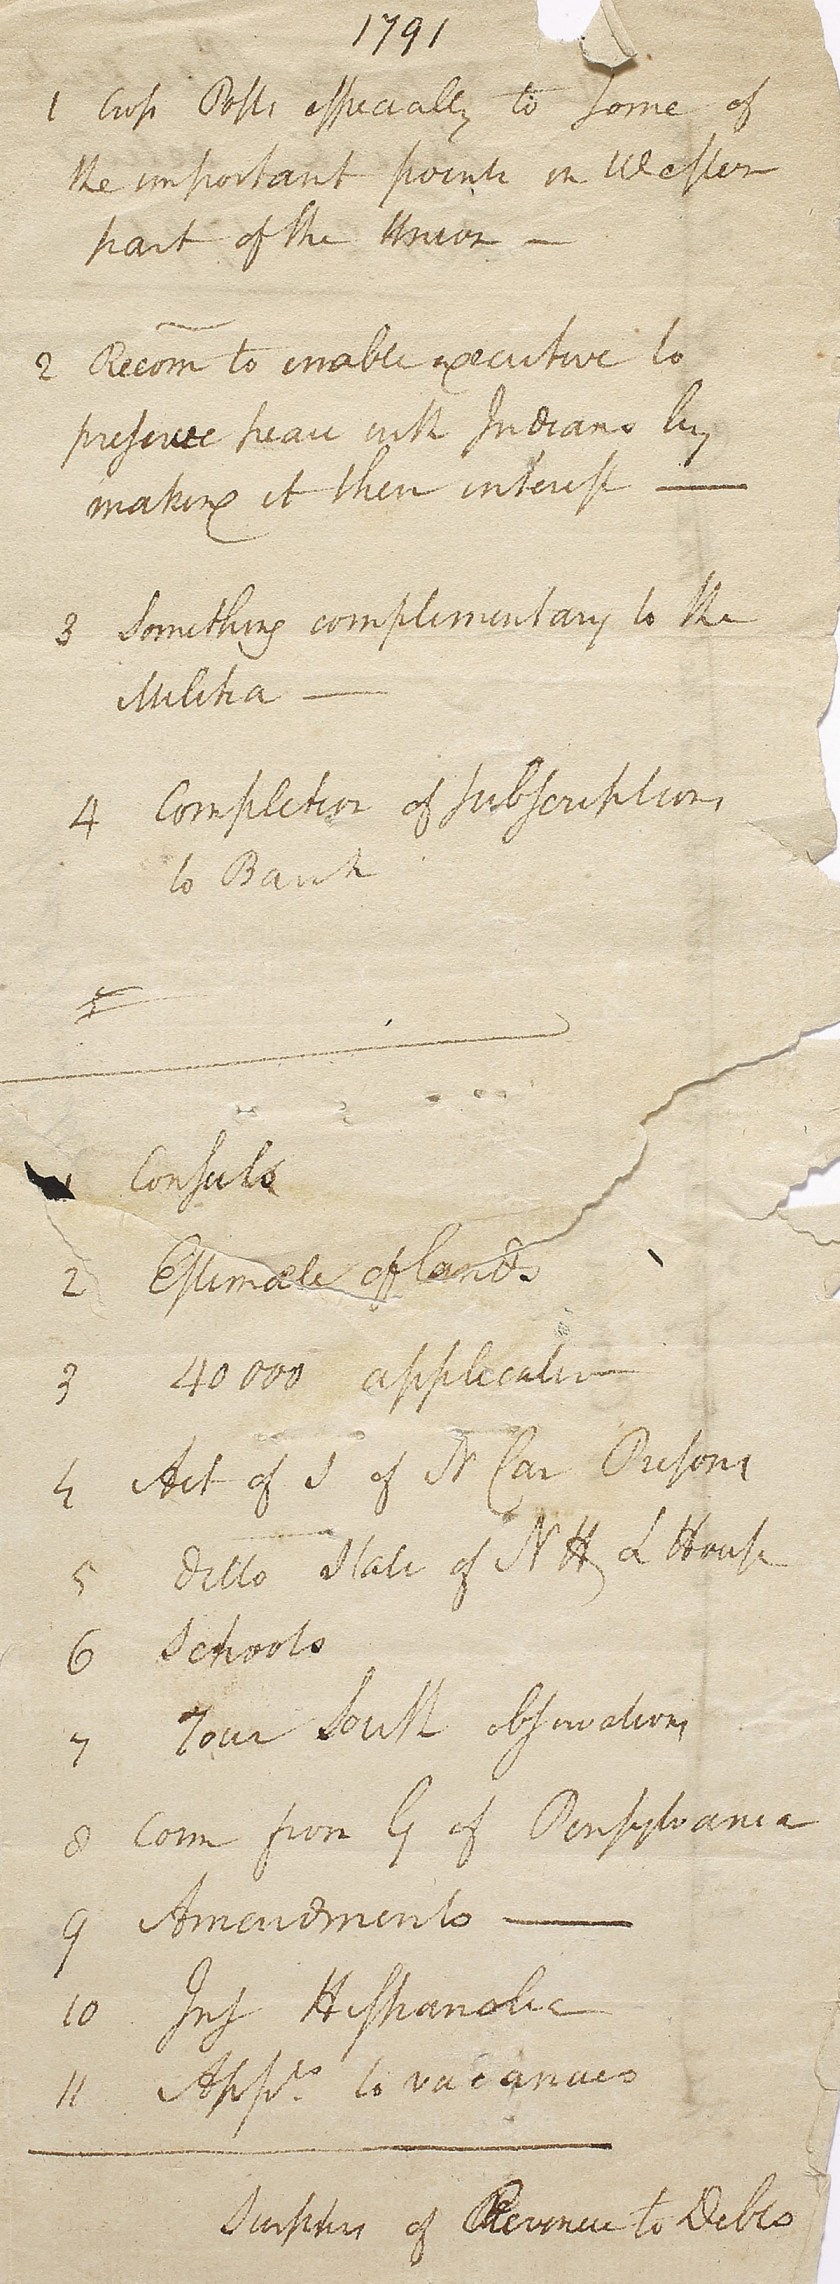 1791
1 Cross Posts especially to some of
the important points in Western
part of the Union —
2 Recom to enable executive to
preserve peace with Indians by
making it their interest —
3 Something complimentary to the
Militia —
4 Completion of subscriptions
to Bank
5
1 Consuls
2 Estimate of Lands
3 40000 application
4 Act of S of N Car Prisons
5 ditto State of N H L House
6 Schools
7 Tour South observations
8 Com from G of Pensylvania
9 Amendments —
10 Ins Hispanolia
11 Appts to vacances
Surplus of Revenue to Debts